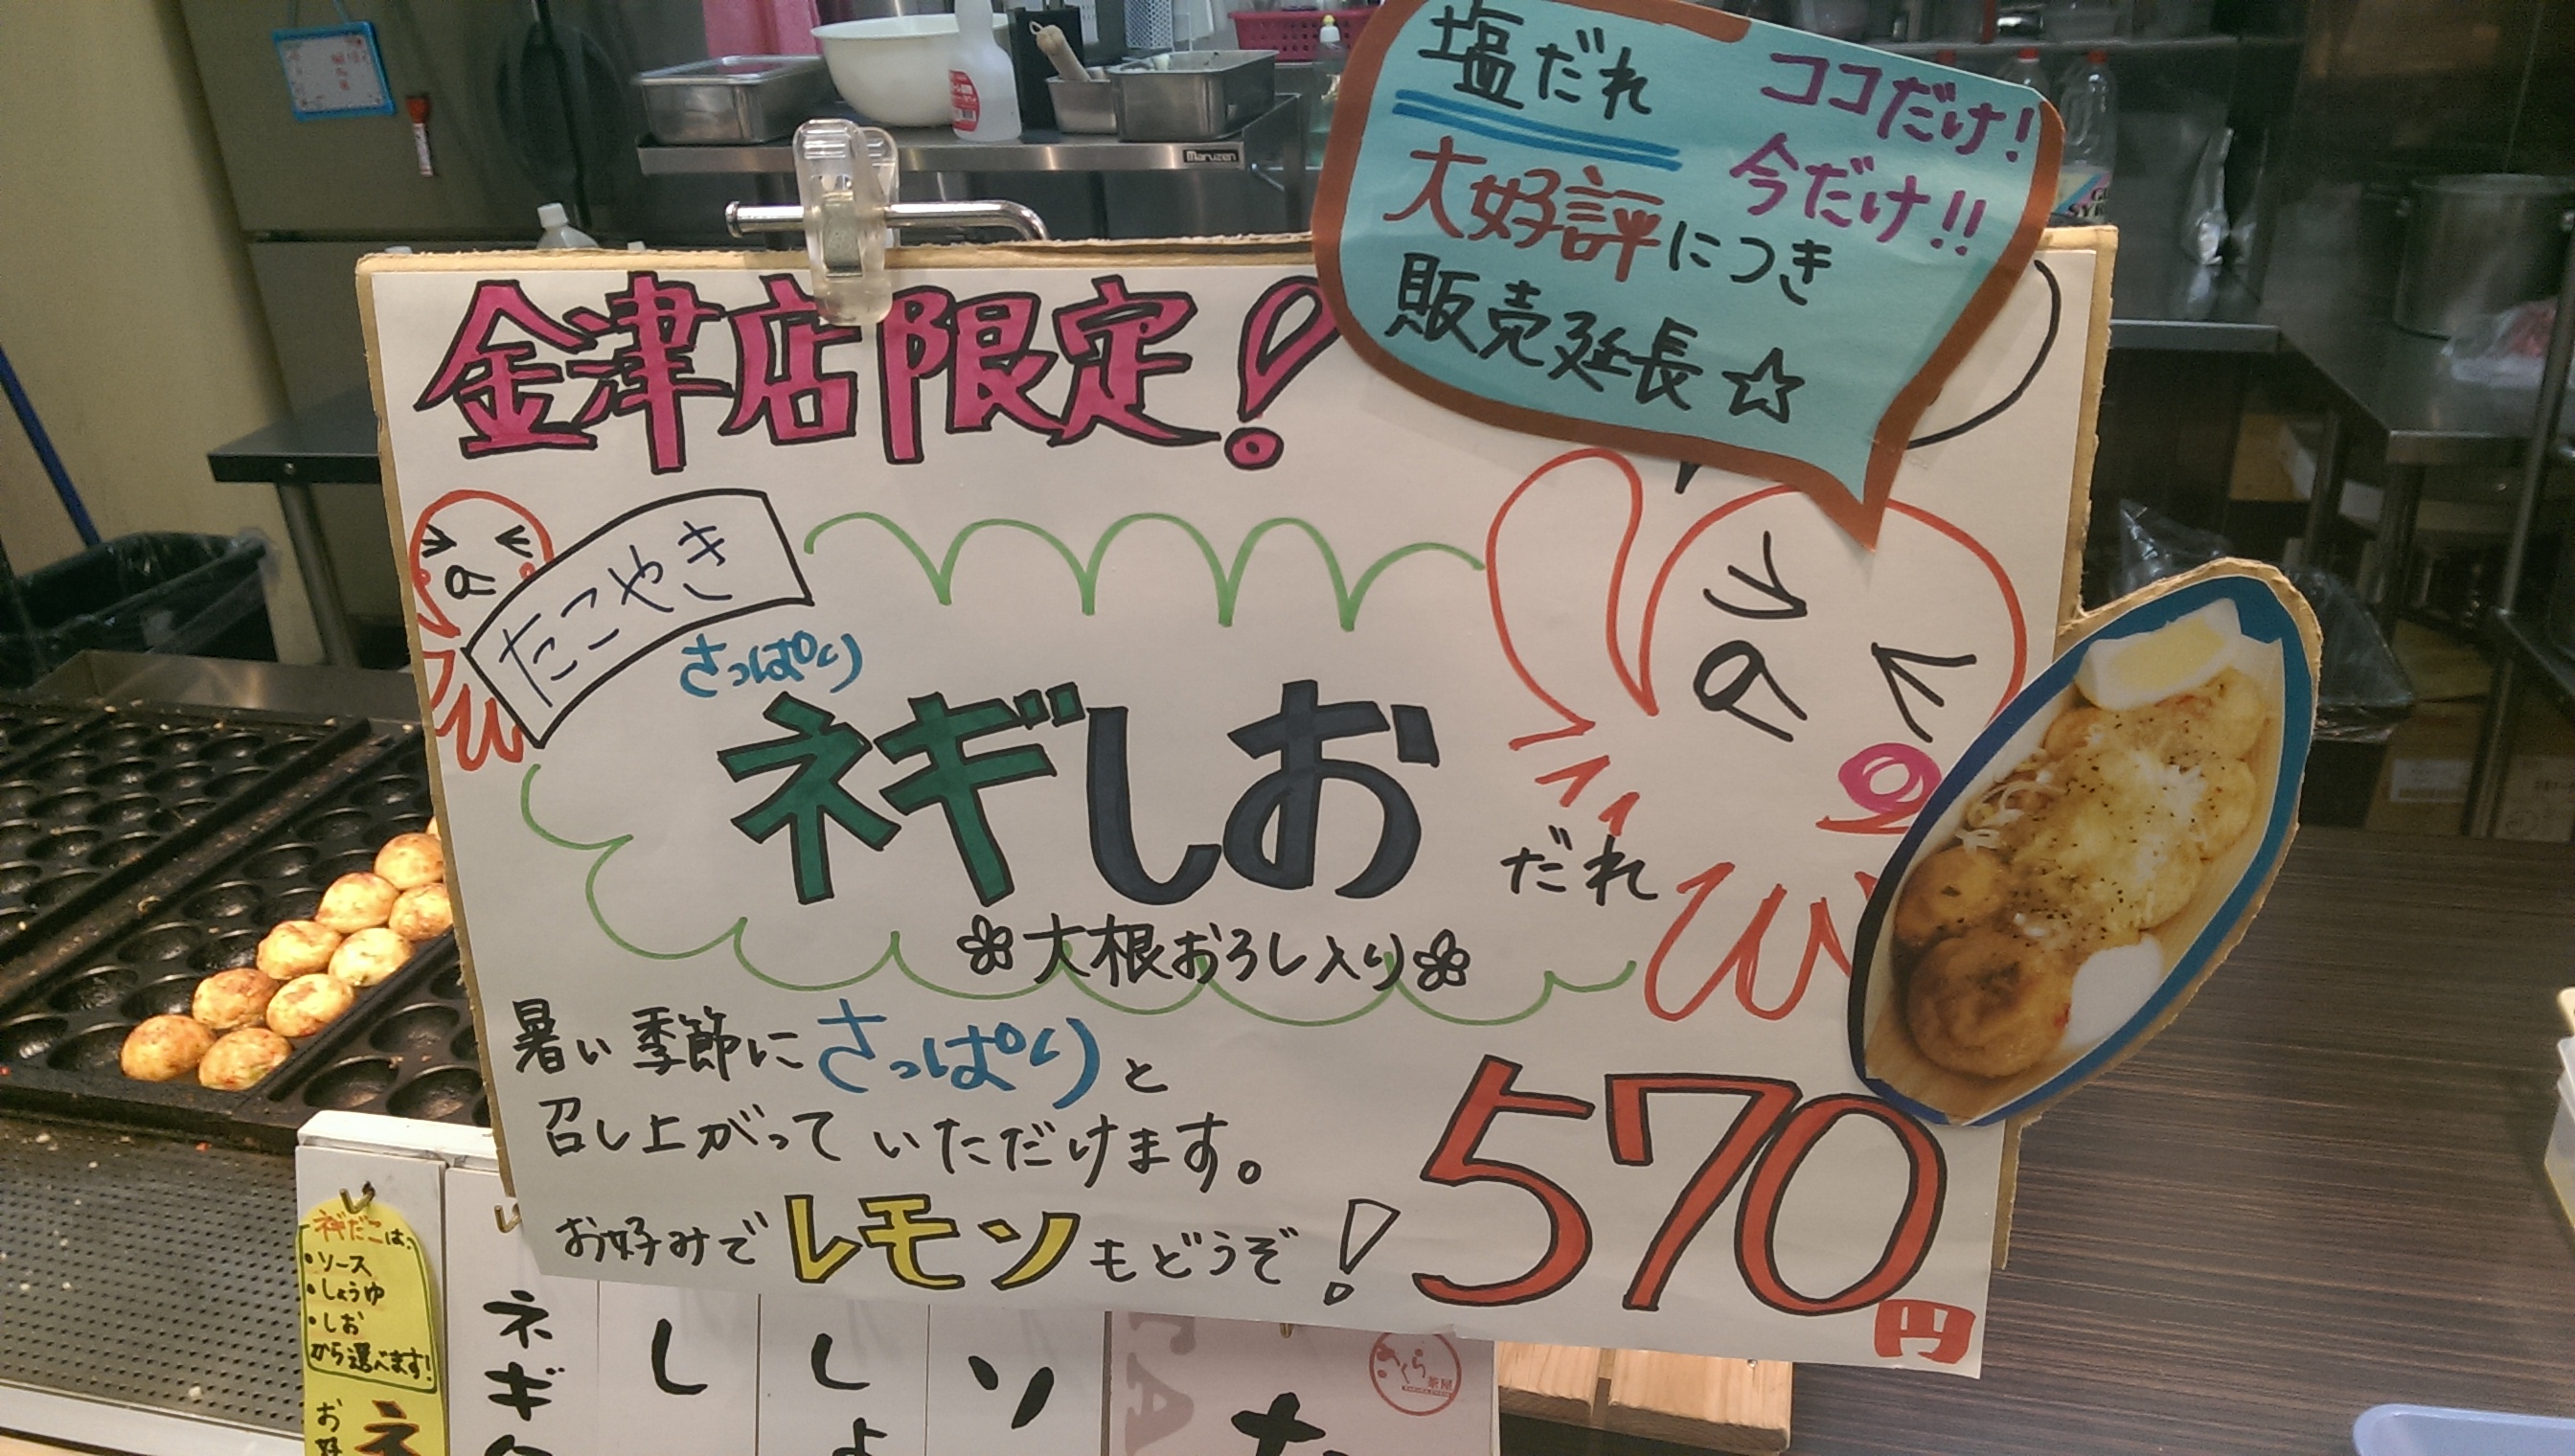 塩だれ
ココだけ!
今だけ!!
大好評につき
販売延長☆
金津店限定!
たこやき
さっぱり
ネギしお
だれ
大根おろし入り
暑い季節にさっぱりと
召し上がっていただけます。
お好みでレモンもどうぞ!
570円
ネギだこは、
・ソース
・しょうゆ
・しお
から選べます!
お好
ネ
ネギ
し
しょ
ソ
た
さくら
茶屋
Maruzen